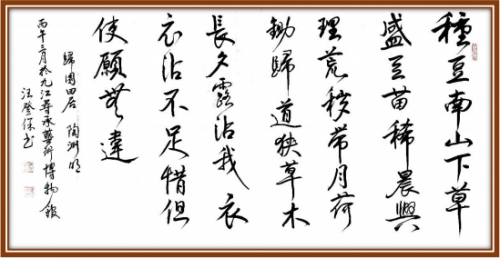 種豆南山下草
盛豆苗稀晨興
理荒秽帶月荷
鋤歸道狹草木
長夕露沾我衣
衣沾不足惜但
使願無違
歸園田居 陶渊明
丙午三月於九江尊承藝術博物館
汪登保书